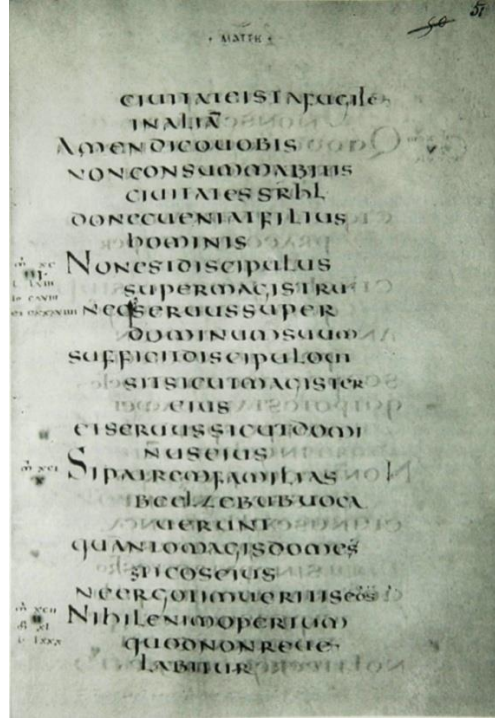 51
50
· MATTH ·
ciuitateistafugite
INALIĀ
AMENDICOUOBIS
NONCONSUMMABITIS
CIUITATESSRhL
DONECUENIATFILIUS
hOMINIS
NONESTDISCIPULUS
SUPERMAGISTRU
NECSERUUSSUPER
DOMINUMSUUM
SUFFICITDISCIPULOUT
SITSICUTMAGISTER
EIUS
ETSERUUSSICUTDOMI
NUSEIUS
SIPATREMFAMILIAS
BEELZEBUBUOCA
UERUNT
QUANTOMAGISDOMES
TICOSEIUS
NEERGOTIMUERITISeos
NIhILENIMOPERTUM
QUODNONREUE
LABITUR